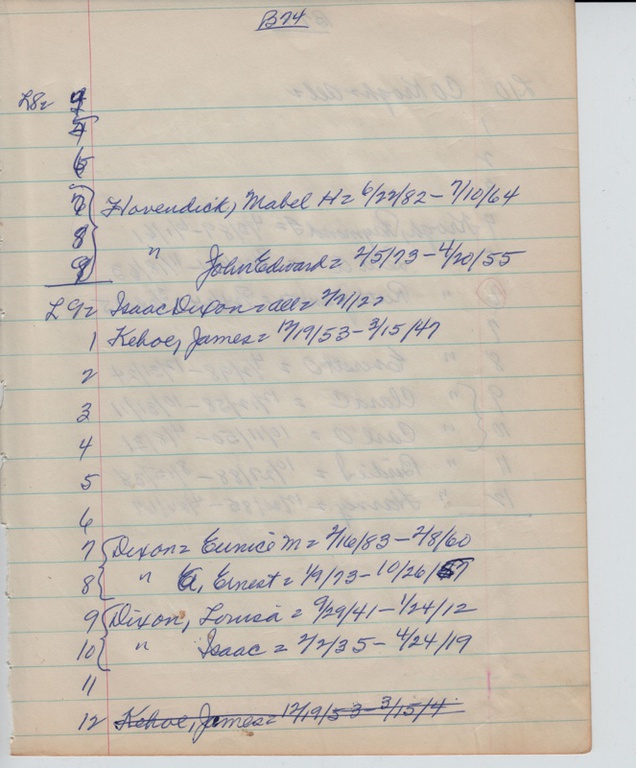 B74
L8= 4
5
6
7 Havendick, Mabel H= 6/22/82 - 7/10/64
8
9 " John Edward = 2/5/73 - 4/20/55
L9= Isaac Dixon = all =
1 Kehoe, James = 12/19/53 - 3/15/47
2
3
4
5
6
7 Dixon = Eunice M = 2/16/83 - 2/8/60
8 " A, Ernest = 1/9/73 - 10/26/57
9 Dixon, Lorusa = 9/29/41 - 1/24/12
10 " Isaac = 2/2/35 - 4/24/19
11
12 Kehoe, James = 12/19/53 - 3/15/4